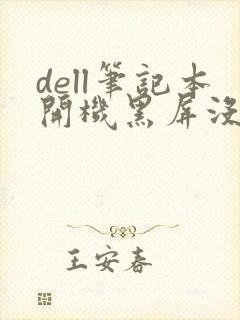 dell筆記本
開機黑屏沒
王安春